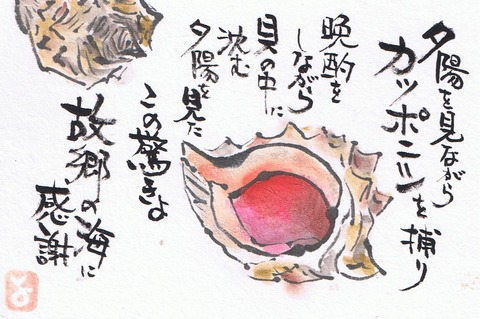 夕陽を見ながら
カッポニシを捕り
晩酌を
しながら
貝の中に
沈む
夕陽を見た
この驚きよ
故郷の海に
感謝